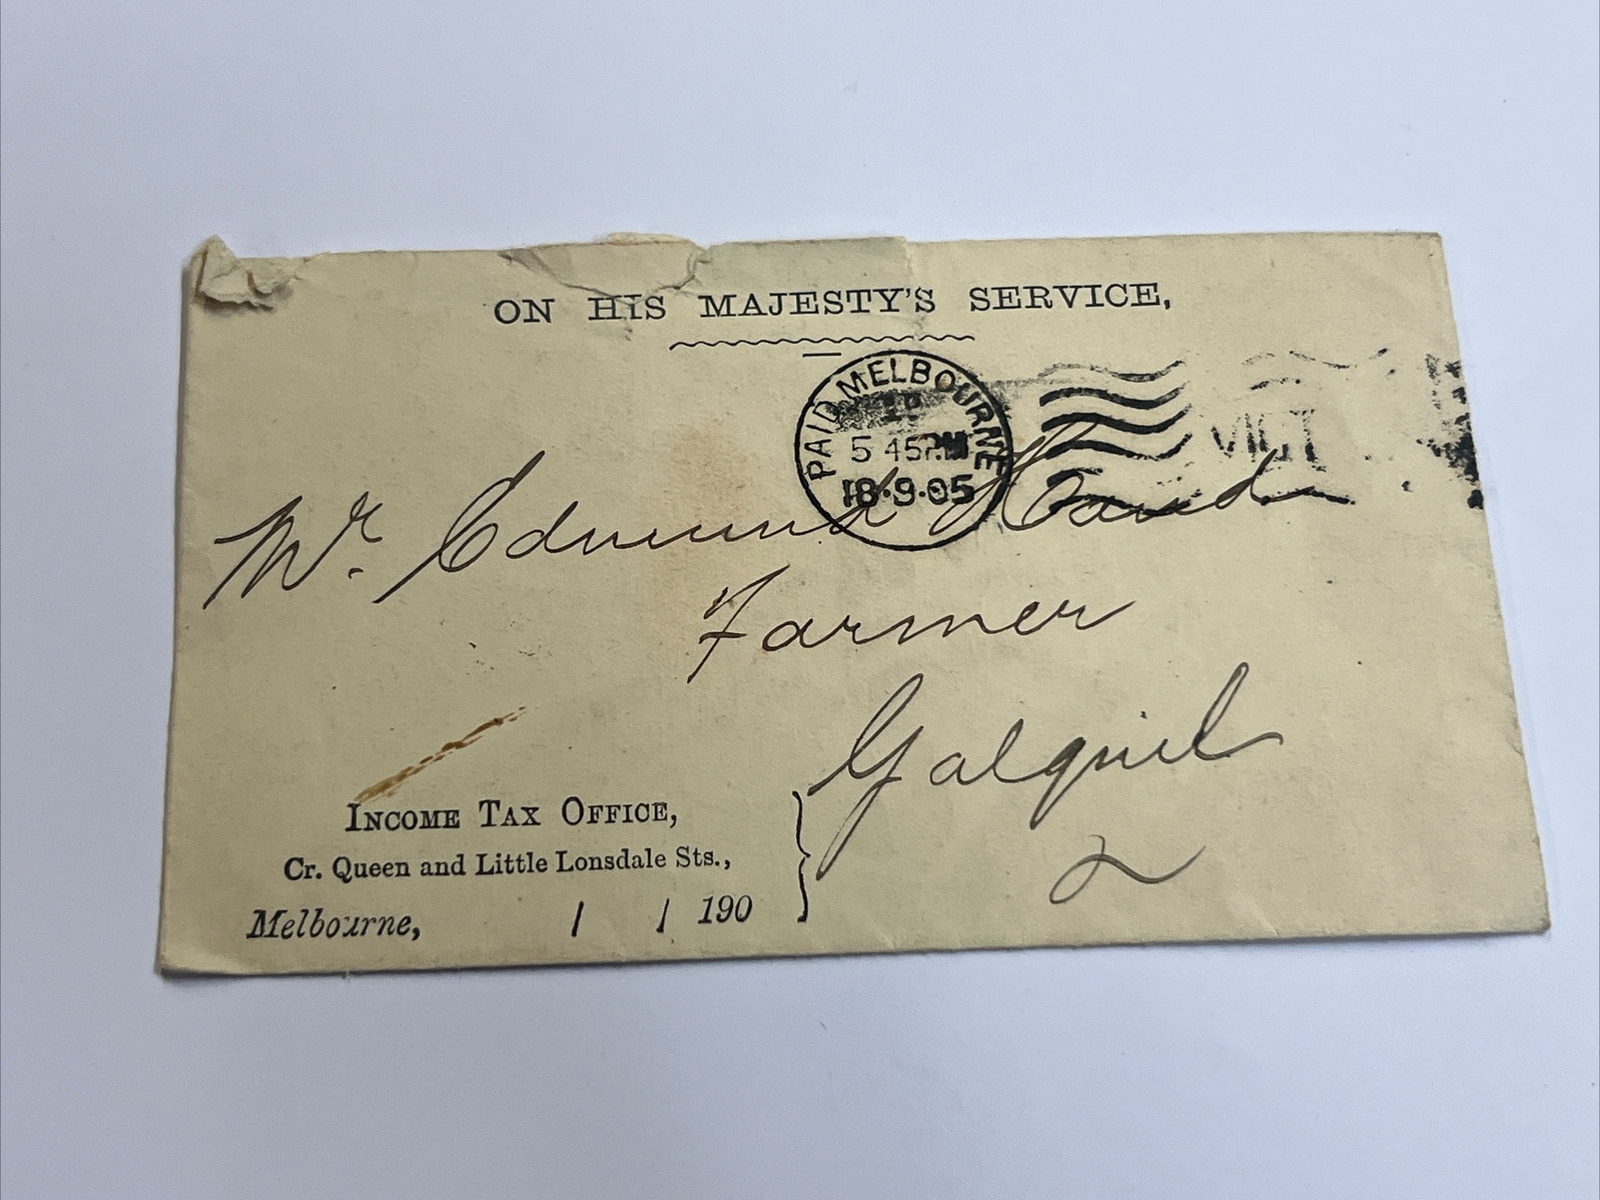 ON HIS MAJESTY'S SERVICE,
PAID MELBOURNE
1P
5 45PM
18·9·05
VICT
Mr. Edmund Hand
Farmer
Yalquil
INCOME TAX OFFICE,
Cr. Queen and Little Lonsdale Sts.,
Melbourne, / / 190